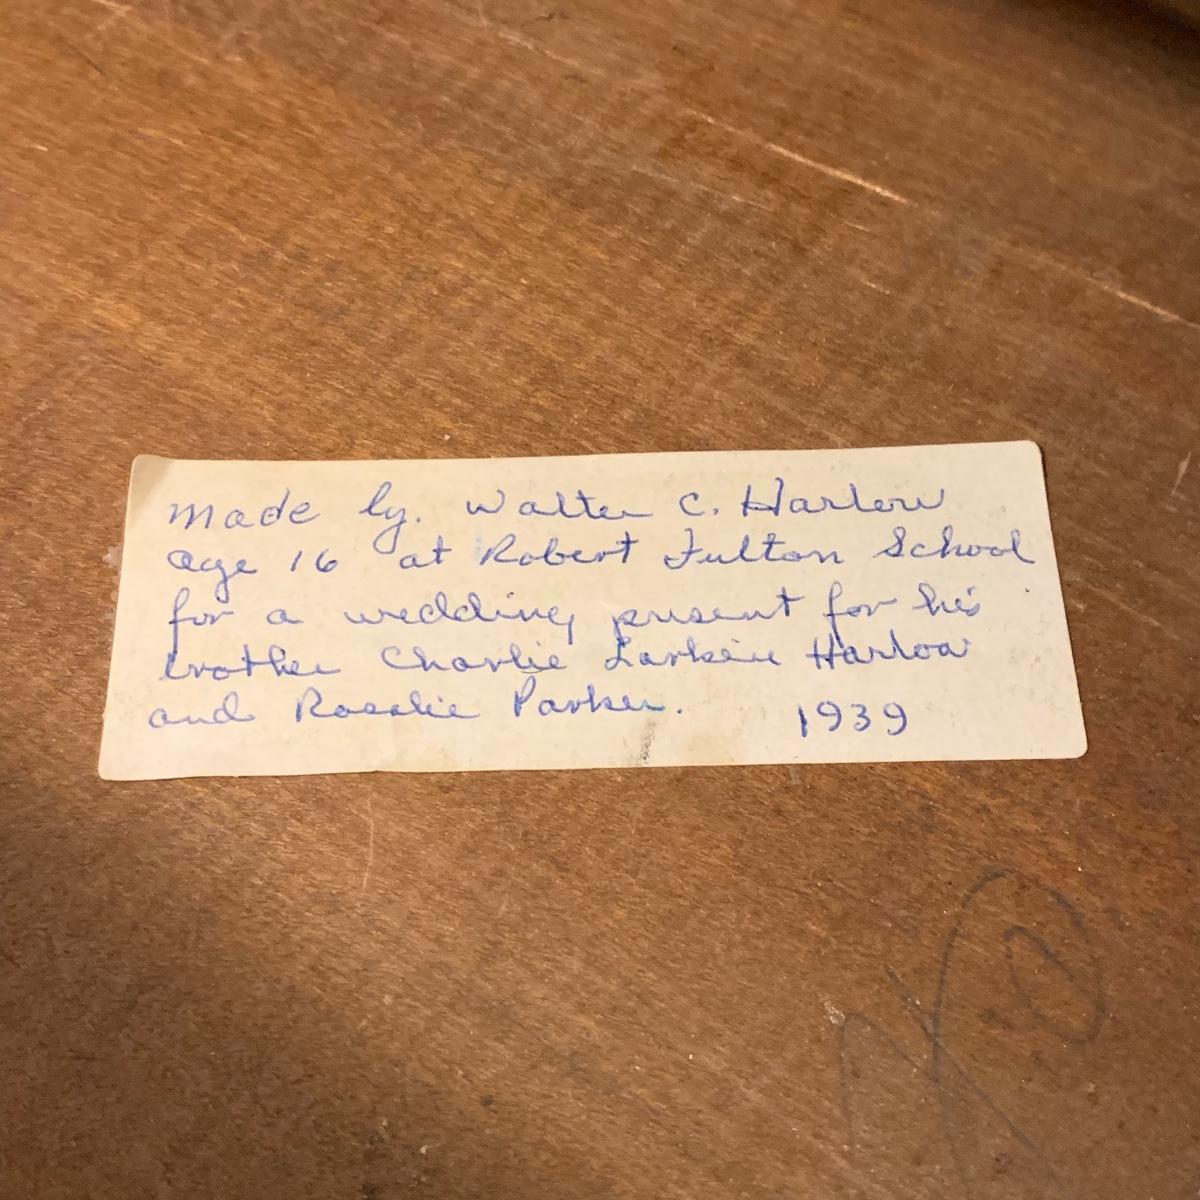 made by. Walter C. Harlow
age 16 at Robert Fulton School
for a wedding present for his
brother Charlie Larkin Harlow
and Rosalie Parker. 1939